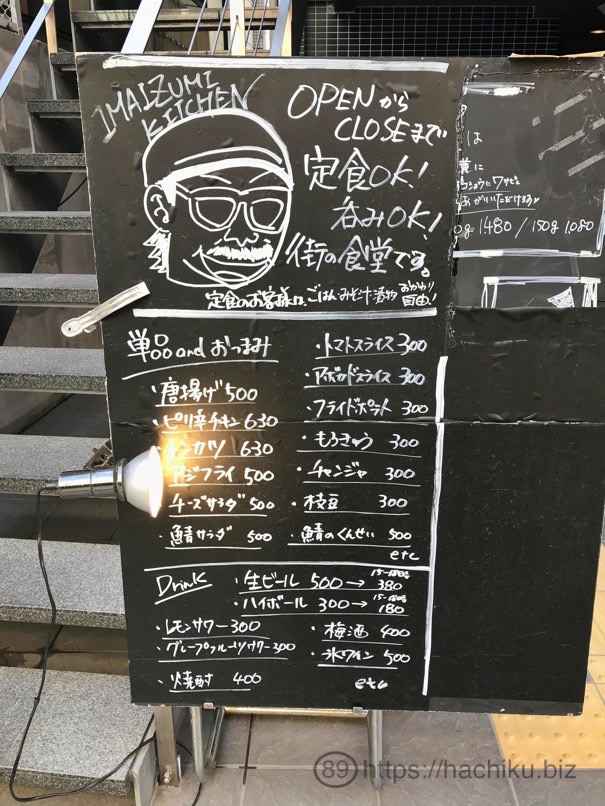 IMAIZUMI
KITCHEN
OPENから
CLOSEまで
定食OK!
呑みOK!
街の食堂です。
定食のお客様は、ごはん・みそ汁・漬物 おかわり自由!
単品andおつまみ
・唐揚げ 500
・ピリ辛チキン 630
トンカツ 630
アジフライ 500
チーズサラダ 500
・鯖サラダ 500
・トマトスライス 300
・アボカドスライス 300
・フライドポテト 300
・もろきゅう 300
・チャンジャ 300
・枝豆 300
・鯖のくんせい 500
etc
Drink
・生ビール 500→380
・ハイボール 300→180
・レモンサワー 300
・グレープフルーツサワー 300
・焼酎 400
・梅酒 400
・氷ワイン 500
etc
は
1480 / 150g 1080
89 https://hachiku.biz